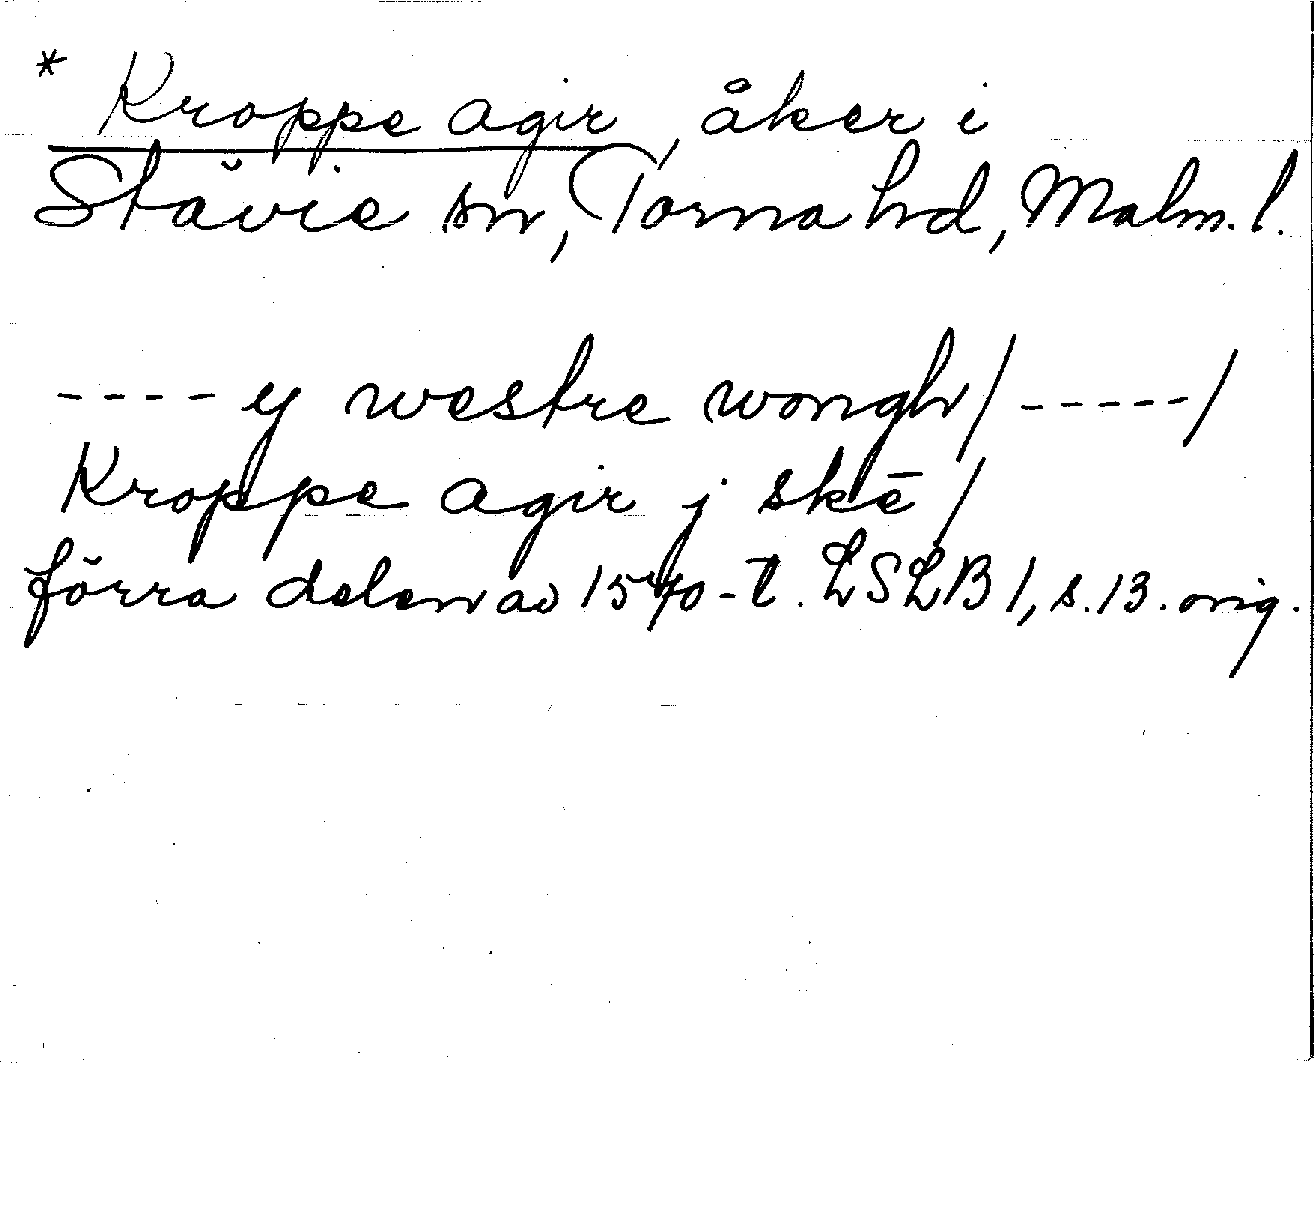 * Kroppe agir, åker i
Stävie sn, Torna hd, Malm. l.
---- y westre wongh/ -----/
Kroppe agir j skē/
förra delen av 1570-t. LSLB 1, s. 13. orig.